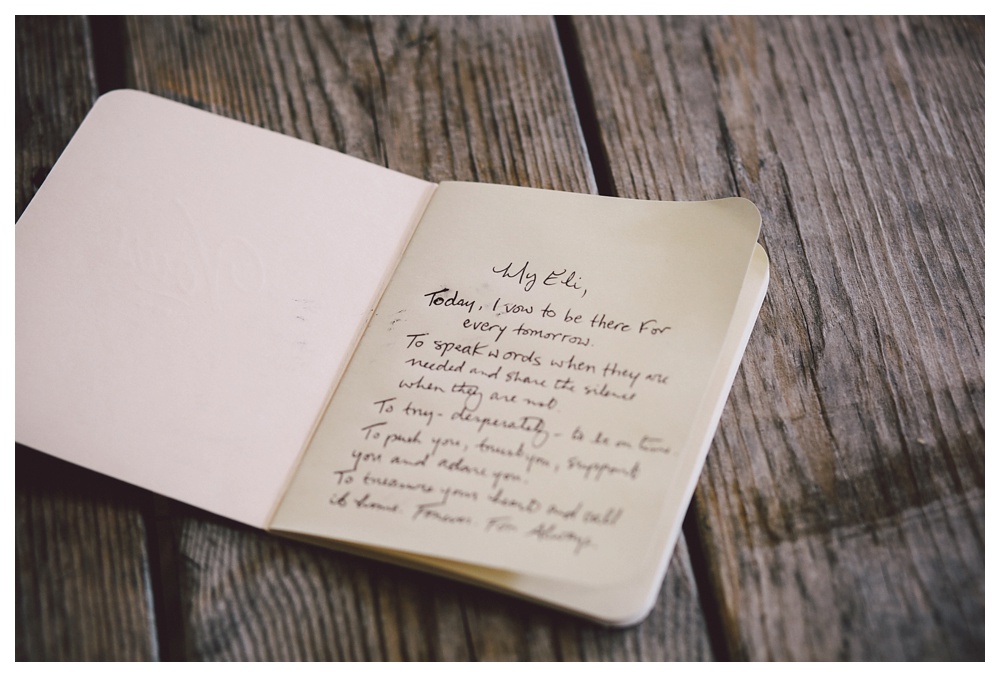 My Eli,
Today, I vow to be there For
every tomorrow.
To speak words when they are
needed and share the silence
when they are not.
To try - desperately - to be on time.
To push you, trust you, support
you and adore you.
To treasure your heart and call
it home. Forever. For Always.